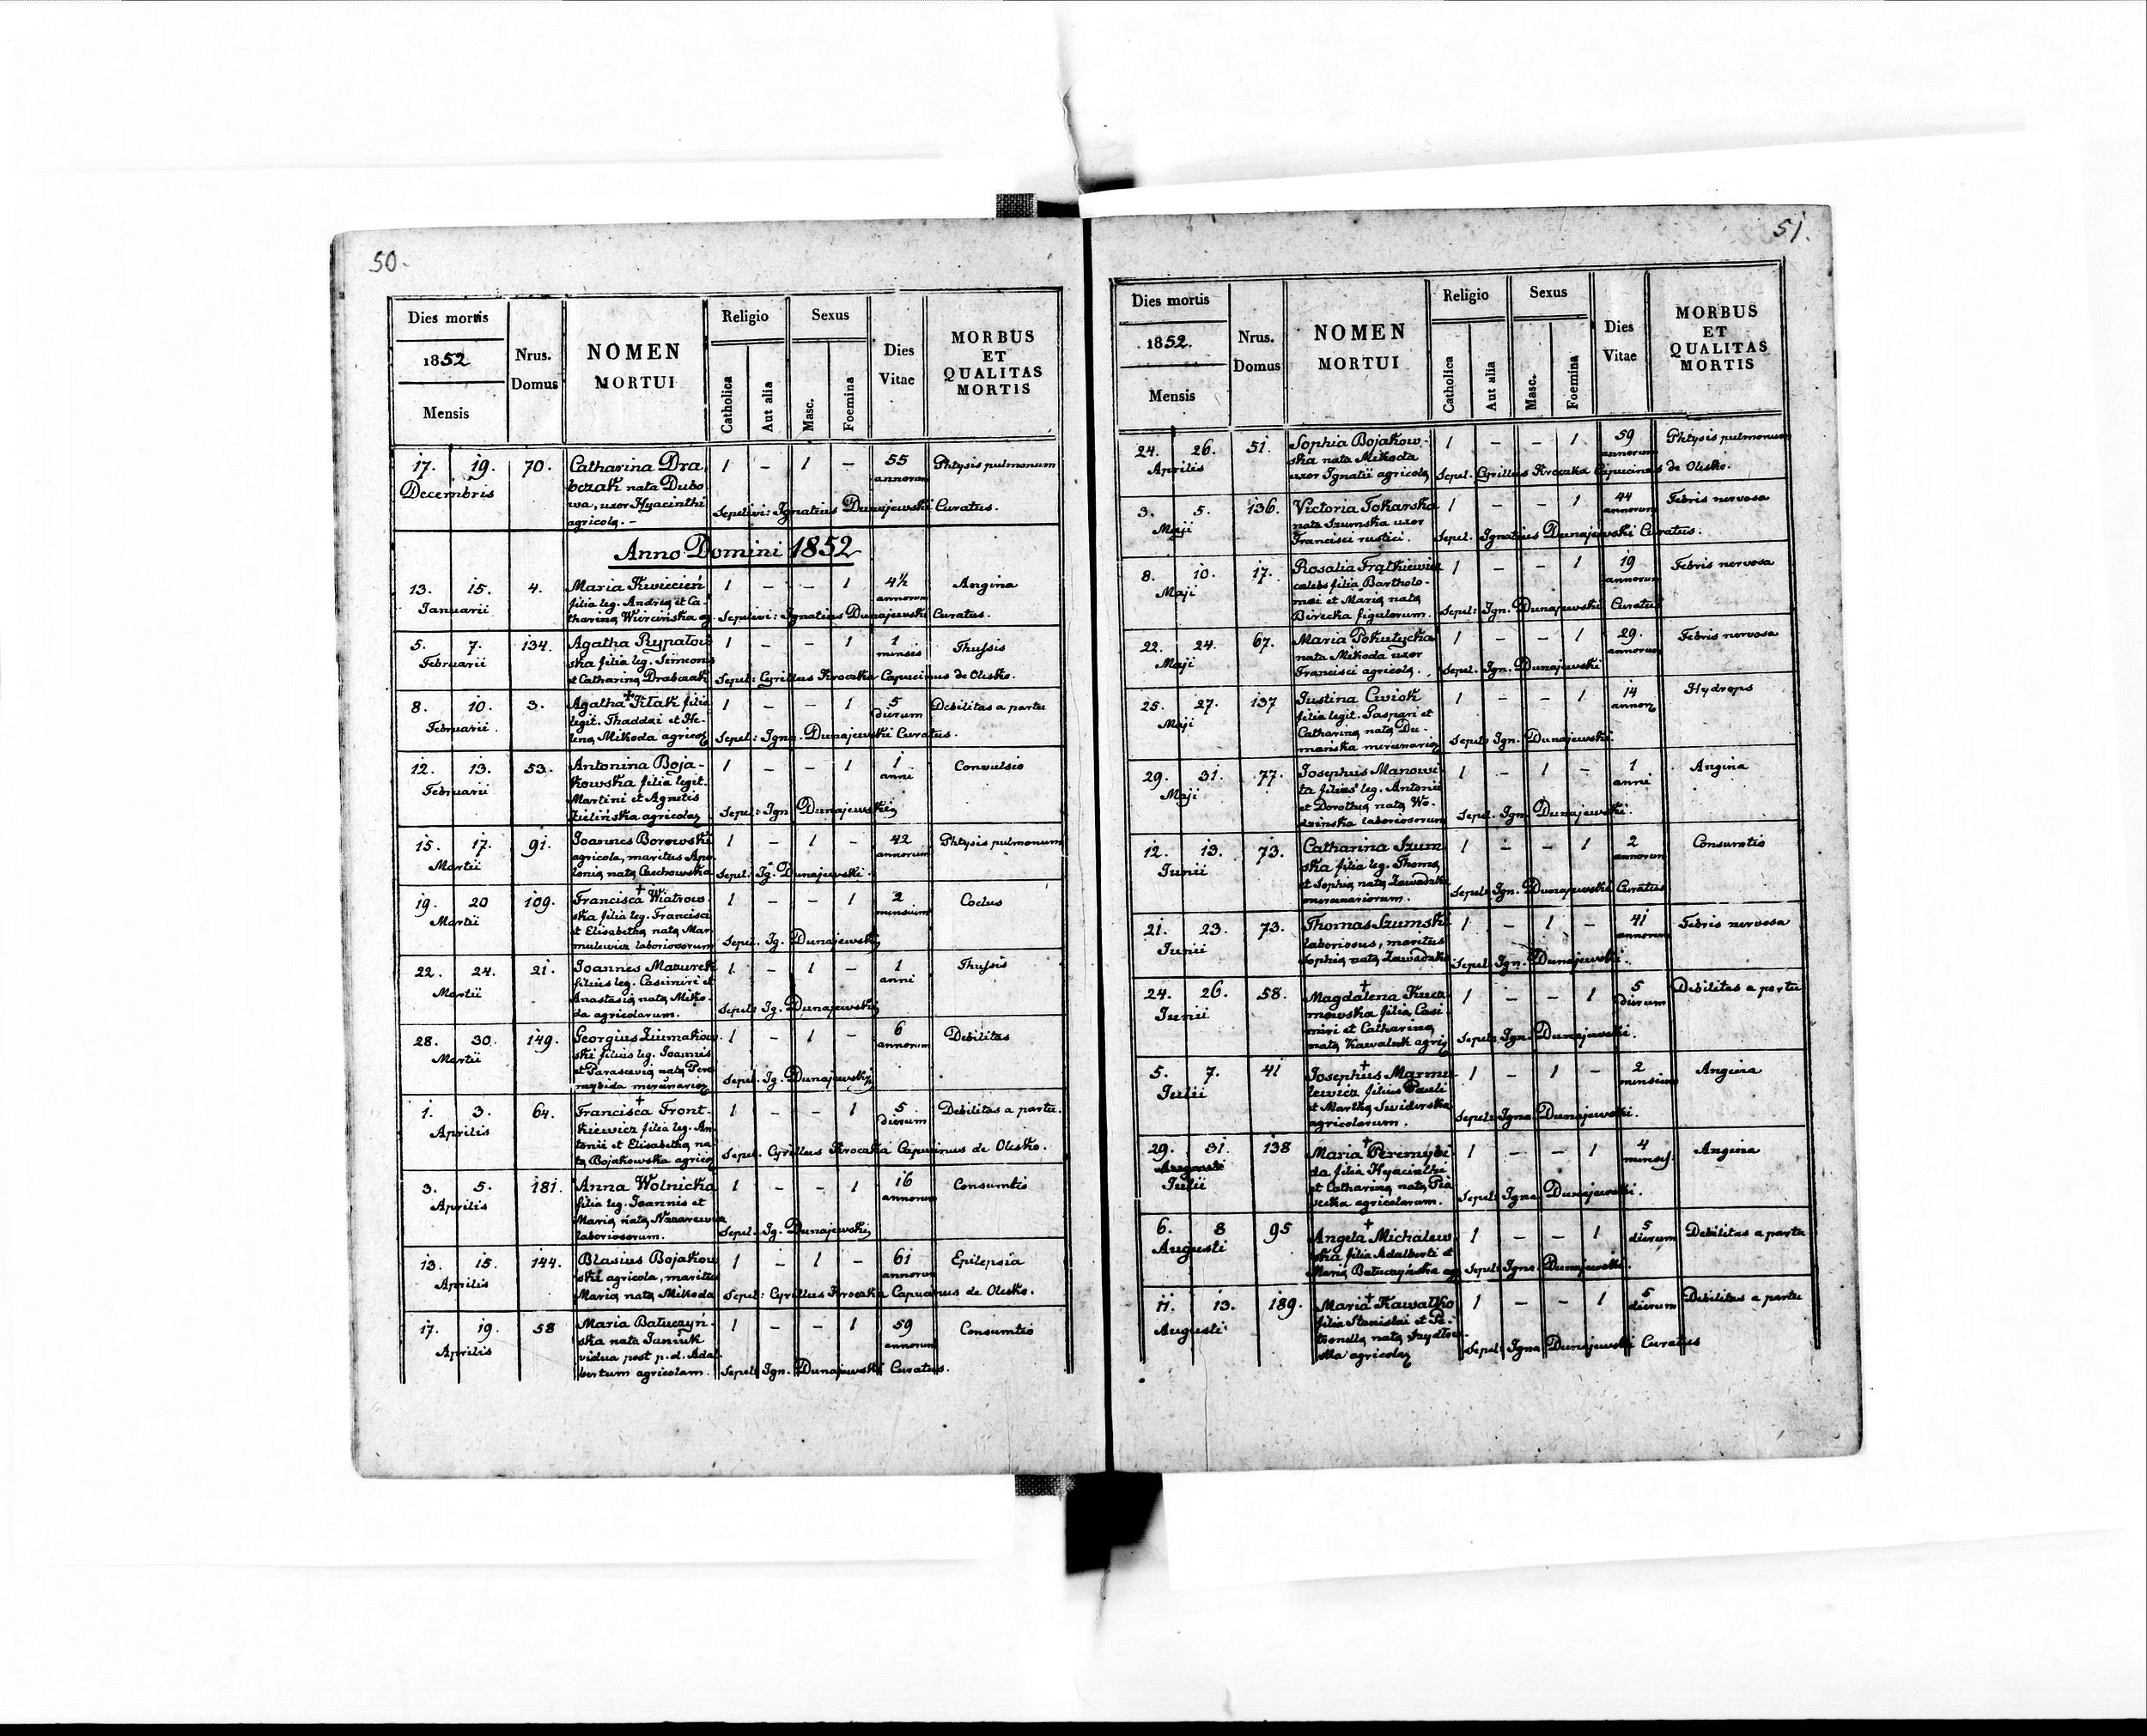 50.
Dies mortis
1852
Mensis
Nrus. Domus
NOMEN MORTUI
Religio
Catholica
Aut alia
Sexus
Masc.
Foemina
Dies Vitae
MORBUS ET QUALITAS MORTIS
17. 19. 70. Catharina Dra 1 – 1 – 55 Phtysis pulmonum
Decembris bczak nata Dubo annorum
wa, uxor Hyacinthi Sepelivi: Ignatius Dunajewski Curatus.
agricolą. –
Anno Domini 1852
13. 15. 4. Maria Kwiecień 1 – – 1 4½ Angina
Januarii filia leg. Andreą et Ca- annorum
thariną Sepelivi: Ignatius Dunajewski Curatus.
5. 7. 134. Agatha Rypałow 1 – – 1 1 Thussis
Februarii ska filia leg. Simeonis mensis
et Cathariną Drabczak Sepel: Cyrillus Kroczka Capucinus de Olesko.
8. 10. 3. Agatha + Kłak filia 1 – – 1 5 Debilitas a partu
Februarii. legit. Thaddaei et He- dierum
leną Mikoda agricol Sepel: Igna. Dunajewski Curatus.
12. 13. 53. Antonina Boja- 1 – – 1 1 Convulsio
Februarii kowska filia legit. anni
Martini et Agnetis
Zielińska agricolar Sepel: Ign Dunajewski
15. 17. 91. Joannes Borowski 1 – 1 – 42 Phtysis pulmonum
Martii agricola, maritus Apo annorum
lonią natą Czechowska Sepel. Ig. Dunajewski.
19. 20 109. Francisca + Wiatrow 1 – – 1 2
Martii ska filia leg. Francisci mensium
et Elisabethą natą Mar
mulewicz laboriosorum Sepel. Ig. Dunajewski
22. 24. 21. Joannes Mazurek 1 – 1 – 1 Thussis
Martii filius leg. Casimiri et anni
Anastasią natą Miko-
da agricolarum. Sepel: Ig. Dunajewski
28. 30. 149. Georgius 1 – 1 – 6 Debilitas
Martii ski filius leg. Joannis annorum
et Parascevią natą Pere
mybida mercenarior Sepel. Ig. Dunajewski
1. 3. 64. Francisca + Front- 1 – – 1 5. Debilitas a partu.
Aprilis kiewicz filia leg. An- dierum
tonii et Elisabethą na
tą Bojakowska agricol Sepel. Cyrillus Kroczka Capucinus de Olesko.
3. 5. 181. Anna Wolnicka 1 – – 1 16 Consumtio
Aprilis filia leg. Joannis et annorum
Marią natą
laboriosorum. Sepel. Ig. Dunajewski
13. 15. 144. Blasius Bojakow 1 – 1 – 61 Epilepsia
Aprilis ski agricola, maritus annorum
Marią natą Mikoda Sepel: Cyrillus Kroczka Capucinus de Olesko.
17. 19. 58 Maria Bałuczyń- 1 – – 1 59 Consumtio
Aprilis ska nata Janiuk annorum
vidua post p.d. Adal
bertum agricolam. Sepel: Ign. Dunajewski Curatus.
51.
Dies mortis
1852.
Mensis
Nrus. Domus
NOMEN MORTUI
Religio
Catholica
Aut alia
Sexus
Masc.
Foemina
Dies Vitae
MORBUS ET QUALITAS MORTIS
24. 26. 51. Sophia Bojakow- 1 – – 1 59 Phtysis pulmonum
Aprilis ska nata Mikoda annorum
uxor Ignatii agricolą Sepel. Cyrillus Kroczka Capucinus de Olesko.
3. 5. 136. Victoria Tokarska 1 – – 1 44 Febris nervosa
Maji nata Szumska uxor annorum
Francisci rustici. Sepel. Ignatius Dunajewski Curatus.
8. 10. 17. Rosalia Frątkiewicz 1 – – 1 19 Febris nervosa
Maji caelebs filia Bartholo- annorum
mei et Marią natą
Birecka figulorum. Sepel: Ign. Dunajewski Curatus
22. 24. 67. Maria Pokutycka 1 – – 1 29. Febris nervosa
Maji nata Mikoda uxor annorum
Francisci agricolą. Sepel. Ign. Dunajewski
25. 27. 137 Justina Cwiok 1 – – 1 14 Hydrops
Maji filia legit. Gaspari et annor
Cathariną natą Du-
mańska mercenarior Sepel: Ign. Dunajewski.
29. 31. 77. Josephus Manowi- 1 – 1 – 1 Angina
Maji ta filius leg. Antonii anni
et Dorotheą natą Wo-
dzinska laboriosorum Sepel. Ign. Dunajewski.
12. 13. 73. Catharina Szum 1 – – 1 2 Consumtio
Junii ska filia leg. Thomą annorum
et Sophią natą Zawadzka
mercenariorum. Sepel: Ign. Dunajewski Curatus
21. 23. 73. Thomas Szumski 1 – 1 – 41 Febris nervosa
Junii laboriosus, maritus annorum
Sophią natą Zawadzka Sepel: Ign. Dunajewski.
24. 26. 58. Magdalena + 1 – – 1 5 Debilitas a partu
Junii mowska filia Casi dierum
miri et Catharina
natą Kawalek agric Sepel: Ign. Dunajewski.
5. 7. 41 Josephus + Marmu 1 – 1 – 2 Angina
Julii lewicz filius Pauli mensium
et Marthą Swiderska
agricolarum. Sepel: Igna. Dunajewski.
29. 31. 138 Maria + Peremybi- 1 – – 1 4 Angina
Augusti da filia Hyacinthi mens
Julii et Catharina natą Pia
secka agricolarum. Sepel: Igna Dunajewski.
6. 8 95 Angela + Michalew 1 – – 1 5 Debilitas a partu
Augusti ska filia Adalberti et dierum
Marią Bałuczyńska ag Sepel: Igna. Dunajewski.
11. 13. 189. Maria + Kawałko 1 – – 1 5 Debilitas a partu
Augusti filia Stanislai et Pe- dierum
tronellą natą Szydłow-
ska agricolar Sepel: Igna Dunajewski Curatus